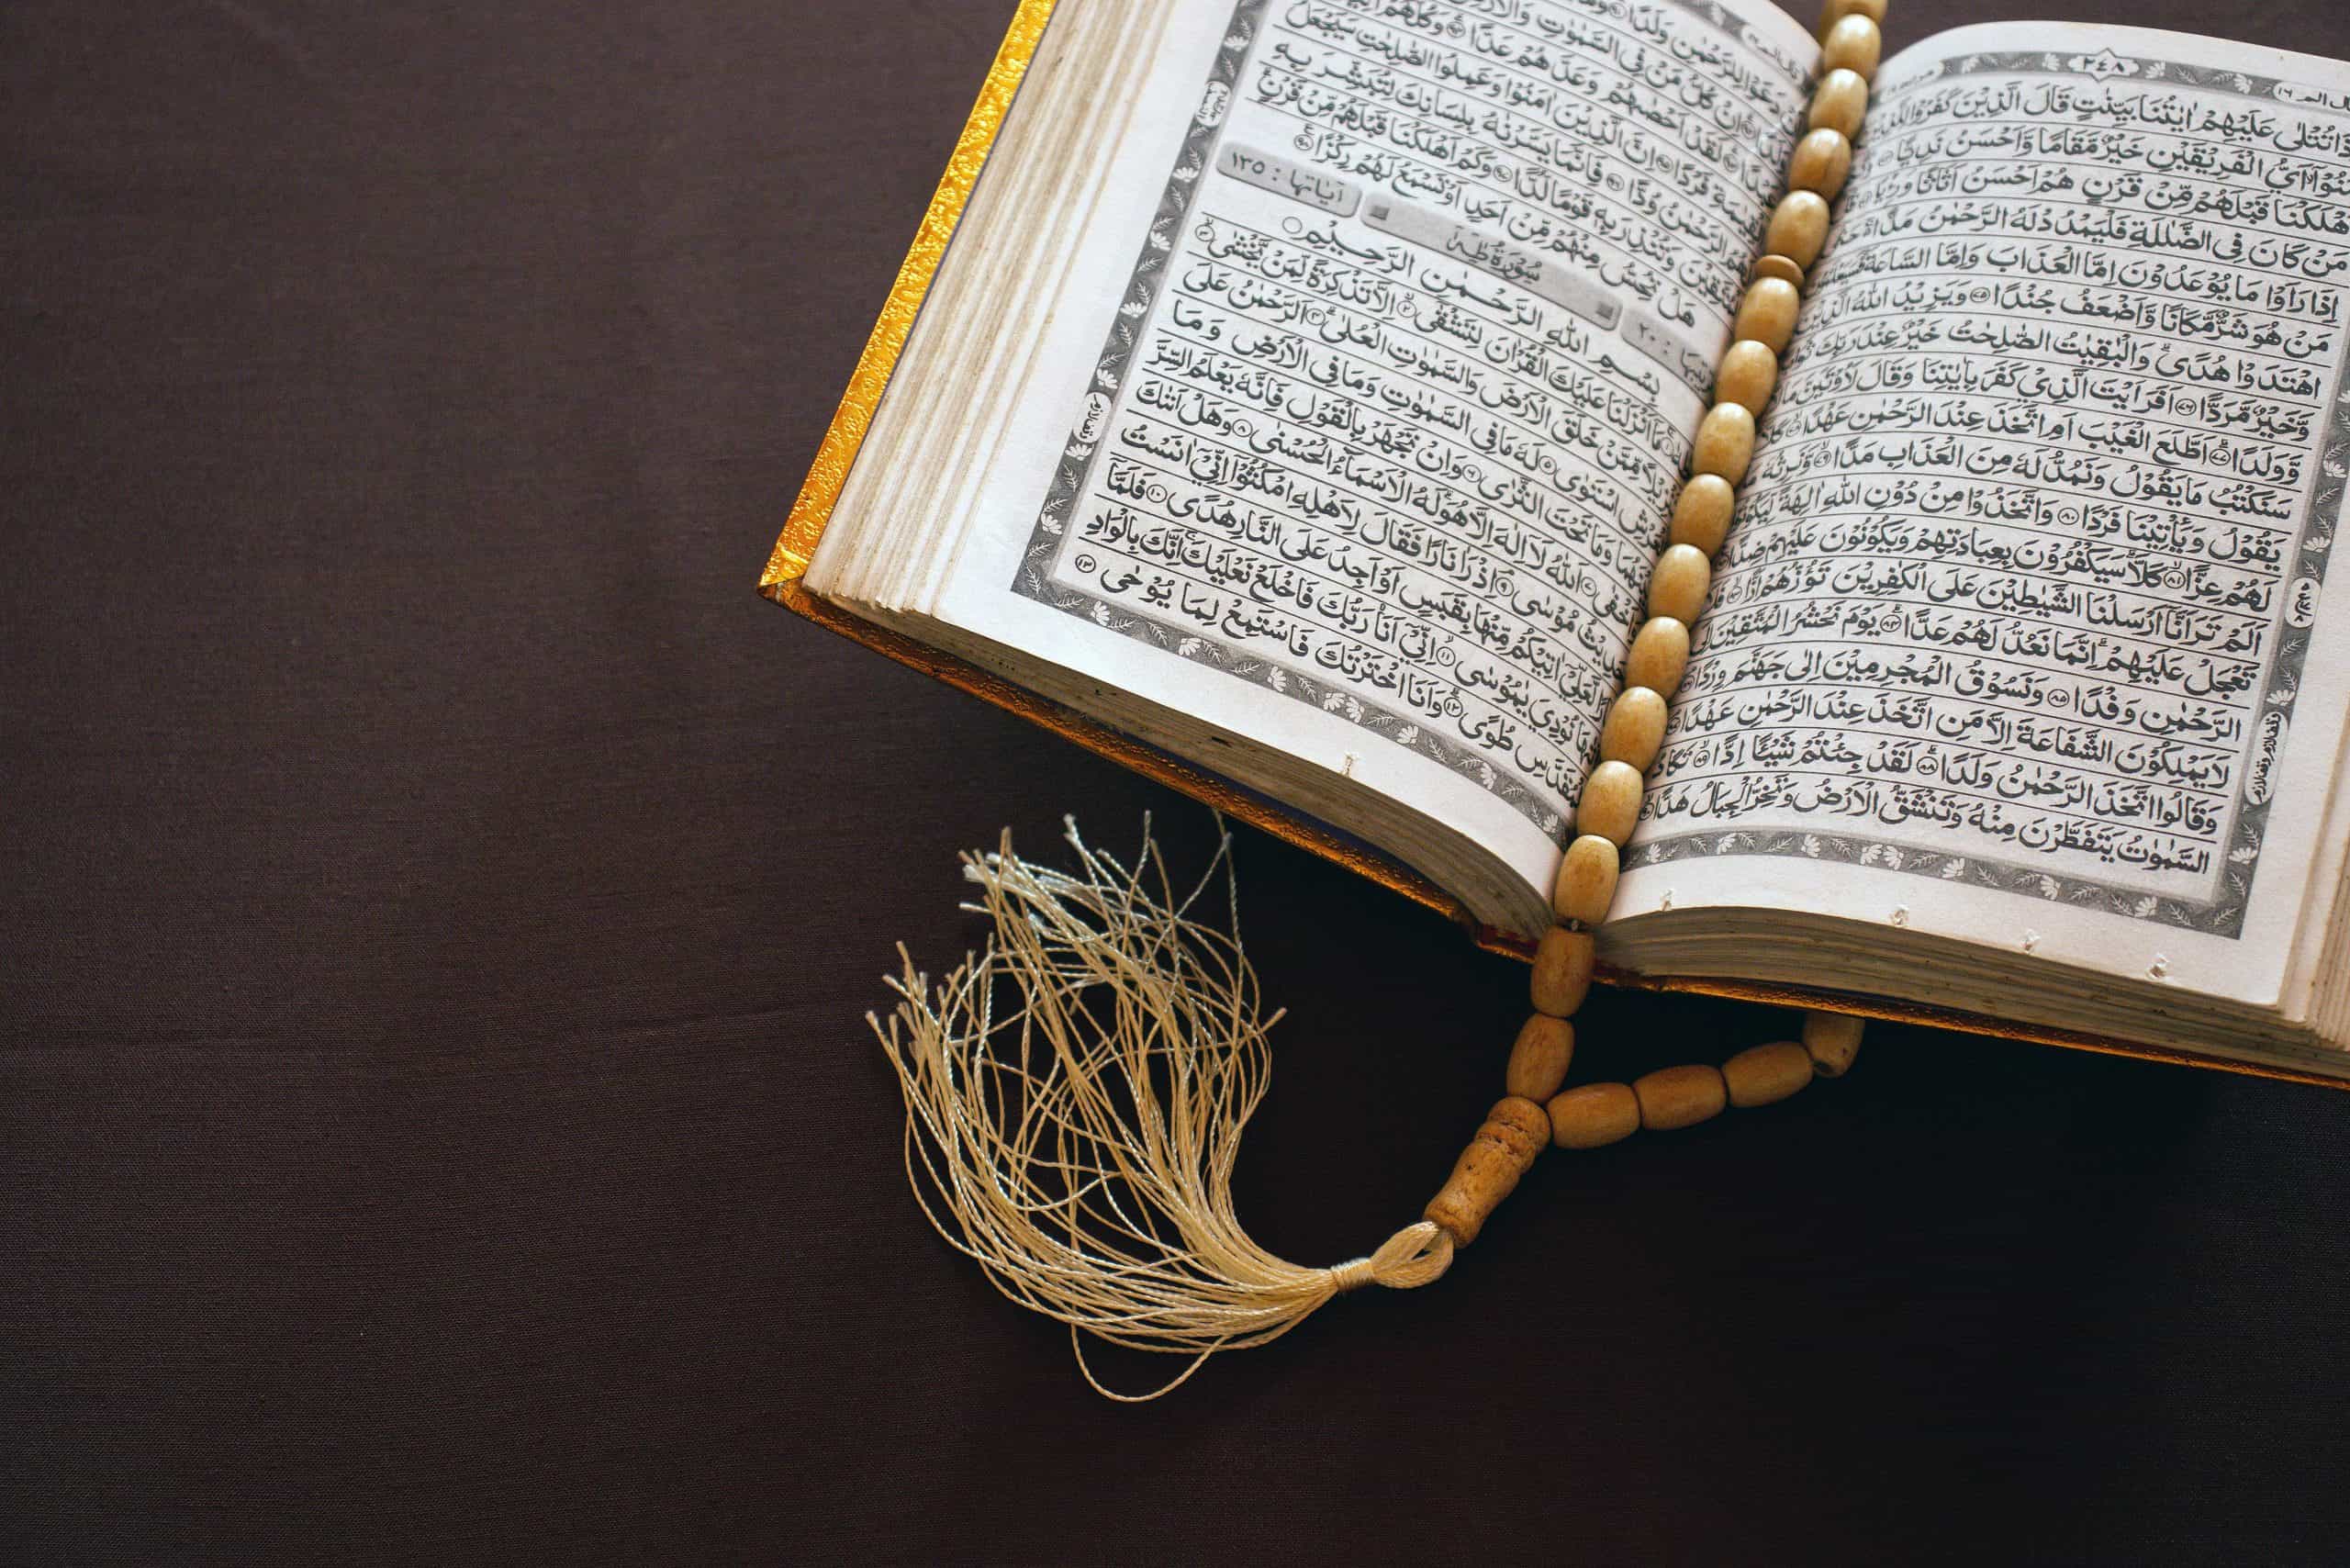 ٢٤٨
تُتْلٰى عَلَيْهِمْ اٰيٰتُنَا بَيِّنٰتٍ قَالَ الَّذِيْنَ كَفَرُوْا
اَيُّ الْفَرِيْقَيْنِ خَيْرٌ مَّقَامًا وَّاَحْسَنُ نَدِيًّا
اَهْلَكْنَا قَبْلَهُمْ مِّنْ قَرْنٍ هُمْ اَحْسَنُ اَثَاثًا وَّرِءْيًا
مَنْ كَانَ فِى الضَّلٰلَةِ فَلْيَمْدُدْ لَهُ الرَّحْمٰنُ مَدًّا
اِذَا رَاَوْا مَا يُوْعَدُوْنَ اِمَّا الْعَذَابَ وَاِمَّا السَّاعَةَ
مَنْ هُوَ شَرٌّ مَّكَانًا وَّاَضْعَفُ جُنْدًا ۝٧٥ وَيَزِيْدُ اللّٰهُ الَّذِيْنَ
اهْتَدَوْا هُدًى وَالْبٰقِيٰتُ الصّٰلِحٰتُ خَيْرٌ عِنْدَ رَبِّكَ
وَّخَيْرٌ مَّرَدًّا ۝٧٦ اَفَرَاَيْتَ الَّذِيْ كَفَرَ بِاٰيٰتِنَا وَقَالَ لَاُوْتَيَنَّ
وَّوَلَدًا ۝٧٧ اَطَّلَعَ الْغَيْبَ اَمِ اتَّخَذَ عِنْدَ الرَّحْمٰنِ عَهْدًا
سَنَكْتُبُ مَا يَقُوْلُ وَنَمُدُّ لَهٗ مِنَ الْعَذَابِ مَدًّا ۝٧٩ وَّنَرِثُهٗ
يَقُوْلُ وَيَاْتِيْنَا فَرْدًا ۝٨٠ وَاتَّخَذُوْا مِنْ دُوْنِ اللّٰهِ اٰلِهَةً
لَهُمْ عِزًّا ۝٨١ كَلَّا سَيَكْفُرُوْنَ بِعِبَادَتِهِمْ وَيَكُوْنُوْنَ عَلَيْهِمْ ضِدًّا
اَلَمْ تَرَ اَنَّا اَرْسَلْنَا الشَّيٰطِيْنَ عَلَى الْكٰفِرِيْنَ تَؤُزُّهُمْ اَزًّا
تَعْجَلْ عَلَيْهِمْ اِنَّمَا نَعُدُّ لَهُمْ عَدًّا ۝٨٤ يَوْمَ نَحْشُرُ الْمُتَّقِيْنَ اِلَى
الرَّحْمٰنِ وَفْدًا ۝٨٥ وَنَسُوْقُ الْمُجْرِمِيْنَ اِلٰى جَهَنَّمَ وِرْدًا
لَا يَمْلِكُوْنَ الشَّفَاعَةَ اِلَّا مَنِ اتَّخَذَ عِنْدَ الرَّحْمٰنِ عَهْدًا
وَقَالُوا اتَّخَذَ الرَّحْمٰنُ وَلَدًا ۝٨٨ لَقَدْ جِئْتُمْ شَيْئًا اِدًّا ۝٨٩ تَكَادُ
السَّمٰوٰتُ يَتَفَطَّرْنَ مِنْهُ وَتَنْشَقُّ الْاَرْضُ وَتَخِرُّ الْجِبَالُ هَدًّا
دَعَوْا لِلرَّحْمٰنِ وَلَدًا
اِنْ كُلُّ مَنْ فِى السَّمٰوٰتِ وَالْاَرْضِ
لَقَدْ اَحْصٰهُمْ وَعَدَّهُمْ عَدًّا وَكُلُّهُمْ
فَرْدًا اِنَّ الَّذِيْنَ اٰمَنُوْا وَعَمِلُوا الصّٰلِحٰتِ سَيَجْعَلُ
الرَّحْمٰنُ وُدًّا فَاِنَّمَا يَسَّرْنٰهُ بِلِسَانِكَ لِتُبَشِّرَ بِهِ
الْمُتَّقِيْنَ وَتُنْذِرَ بِهٖ قَوْمًا لُّدًّا ۝٩٧ وَكَمْ اَهْلَكْنَا قَبْلَهُمْ مِّنْ قَرْنٍ
هَلْ تُحِسُّ مِنْهُمْ مِّنْ اَحَدٍ اَوْ تَسْمَعُ لَهُمْ رِكْزًا ۝٩٨
٢٠ سُوْرَةُ طٰهٰ آياتها : ١٣٥
بِسْمِ اللّٰهِ الرَّحْمٰنِ الرَّحِيْمِ
مَا اَنْزَلْنَا عَلَيْكَ الْقُرْاٰنَ لِتَشْقٰى ۝٢ اِلَّا تَذْكِرَةً لِّمَنْ يَّخْشٰى ۝٣
مِّمَّنْ خَلَقَ الْاَرْضَ وَالسَّمٰوٰتِ الْعُلٰى ۝٤ اَلرَّحْمٰنُ عَلَى
الْعَرْشِ اسْتَوٰى ۝٥ لَهٗ مَا فِى السَّمٰوٰتِ وَمَا فِى الْاَرْضِ وَمَا
بَيْنَهُمَا وَمَا تَحْتَ الثَّرٰى ۝٦ وَاِنْ تَجْهَرْ بِالْقَوْلِ فَاِنَّهٗ يَعْلَمُ السِّرَّ
وَاَخْفٰى ۝٧ اَللّٰهُ لَا اِلٰهَ اِلَّا هُوَ لَهُ الْاَسْمَاءُ الْحُسْنٰى ۝٨ وَهَلْ اَتٰىكَ
حَدِيْثُ مُوْسٰى ۝٩ اِذْ رَاٰ نَارًا فَقَالَ لِاَهْلِهِ امْكُثُوْا اِنِّيْ اٰنَسْتُ
لَّعَلِّيْ اٰتِيْكُمْ مِّنْهَا بِقَبَسٍ اَوْ اَجِدُ عَلَى النَّارِ هُدًى ۝١٠ فَلَمَّا
اَتٰىهَا نُوْدِيَ يٰمُوْسٰى ۝١١ اِنِّيْ اَنَا رَبُّكَ فَاخْلَعْ نَعْلَيْكَ اِنَّكَ بِالْوَادِ
الْمُقَدَّسِ طُوًى ۝١٢ وَاَنَا اخْتَرْتُكَ فَاسْتَمِعْ لِمَا يُوْحٰى ۝١٣